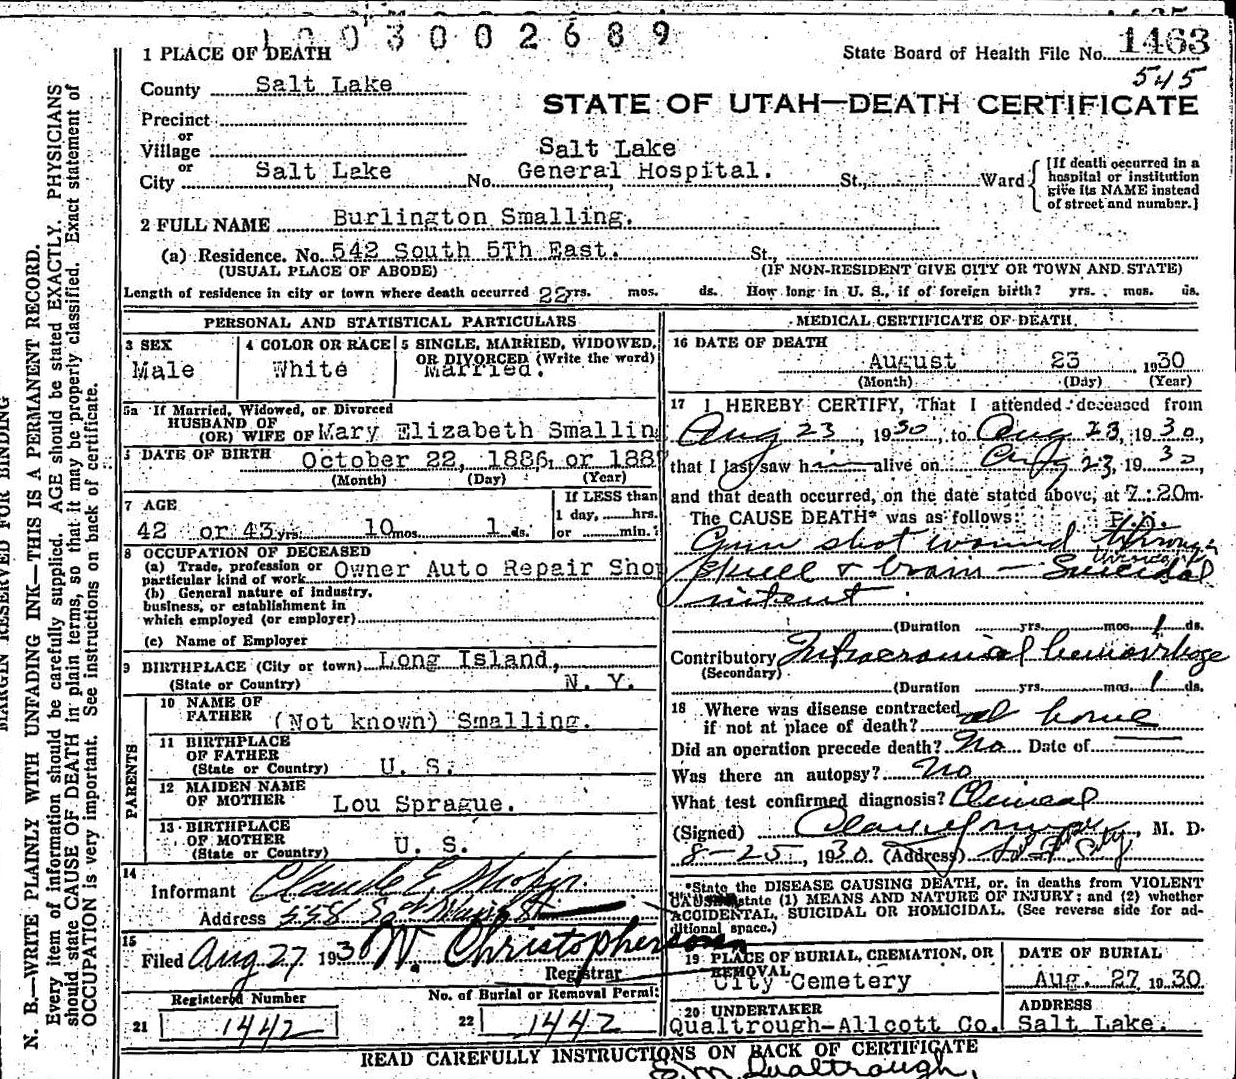 1003002689
1 PLACE OF DEATH
State Board of Health File No. 1463
545
County Salt Lake
STATE OF UTAH—DEATH CERTIFICATE
Precinct
or
Village
Salt Lake
or
City Salt Lake No. General Hospital. St., Ward
[If death occurred in a hospital or institution give its NAME instead of street and number.]
2 FULL NAME Burlington Smalling.
(a) Residence. No. 542 South 5Th East. St.,
(USUAL PLACE OF ABODE) (IF NON-RESIDENT GIVE CITY OR TOWN AND STATE)
Length of residence in city or town where death occurred 22 yrs. mos. ds. How long in U. S., if of foreign birth? yrs. mos. ds.
PERSONAL AND STATISTICAL PARTICULARS
3 SEX
Male
4 COLOR OR RACE
White
5 SINGLE, MARRIED, WIDOWED,
OR DIVORCED (Write the word)
Married.
5a If Married, Widowed, or Divorced
HUSBAND OF
(OR) WIFE OF Mary Elizabeth Smallin
DATE OF BIRTH October 22, 1886, or 1887
(Month) (Day) (Year)
7 AGE
42 or 43 yrs. 10 mos. 1 ds.
If LESS than
1 day, hrs.
or min.
8 OCCUPATION OF DECEASED
(a) Trade, profession or
particular kind of work Owner Auto Repair Shop
(b) General nature of industry,
business, or establishment in
which employed (or employer)
(c) Name of Employer
9 BIRTHPLACE (City or town) Long Island,
(State or Country) N. Y.
PARENTS
10 NAME OF
FATHER (Not known) Smalling.
11 BIRTHPLACE
OF FATHER
(State or Country) U. S.
12 MAIDEN NAME
OF MOTHER Lou Sprague.
13 BIRTHPLACE
OF MOTHER
(State or Country) U. S.
14
Informant Claude E.
Address 558 So Main St
15
Filed Aug 27 1930 W. Christopherson
Registrar
Registered Number
21 1442
No. of Burial or Removal Permit
22 1442
MEDICAL CERTIFICATE OF DEATH
16 DATE OF DEATH
August 23 1930
(Month) (Day) (Year)
17 I HEREBY CERTIFY, That I attended deceased from
Aug 23, 1930, to Aug 23, 1930,
that I last saw him alive on Aug 23, 1930,
and that death occurred, on the date stated above, at 7:20m.
The CAUSE DEATH* was as follows: P.
Gun shot wound through
through
skull & brain — Suicidal
intent
(Duration yrs. mos. 1 ds.
Contributory Intracranial hemorrhage
(Secondary)
(Duration yrs. mos. 1 ds.
18 Where was disease contracted
if not at place of death? at home
Did an operation precede death? No Date of
Was there an autopsy? No
What test confirmed diagnosis? Clinical
(Signed) , M. D.
8-25, 1930. (Address) City
*State the DISEASE CAUSING DEATH, or, in deaths from VIOLENT
CAUSES, state (1) MEANS AND NATURE OF INJURY; and (2) whether
ACCIDENTAL, SUICIDAL OR HOMICIDAL. (See reverse side for ad-
ditional space.)
19 PLACE OF BURIAL, CREMATION, OR
REMOVAL
City Cemetery
DATE OF BURIAL
Aug. 27 1930
20 UNDERTAKER
Qualtrough-Allcott Co.
ADDRESS
Salt Lake.
READ CAREFULLY INSTRUCTIONS ON BACK OF CERTIFICATE
E. M. Qualtrough.
MARGIN RESERVED FOR BINDING
N. B.—WRITE PLAINLY WITH UNFADING INK—THIS IS A PERMANENT RECORD.
Every item of information should be carefully supplied. AGE should be stated EXACTLY. PHYSICIANS
should state CAUSE OF DEATH in plain terms, so that it may be properly classified. Exact statement of
OCCUPATION is very important. See instructions on back of certificate.